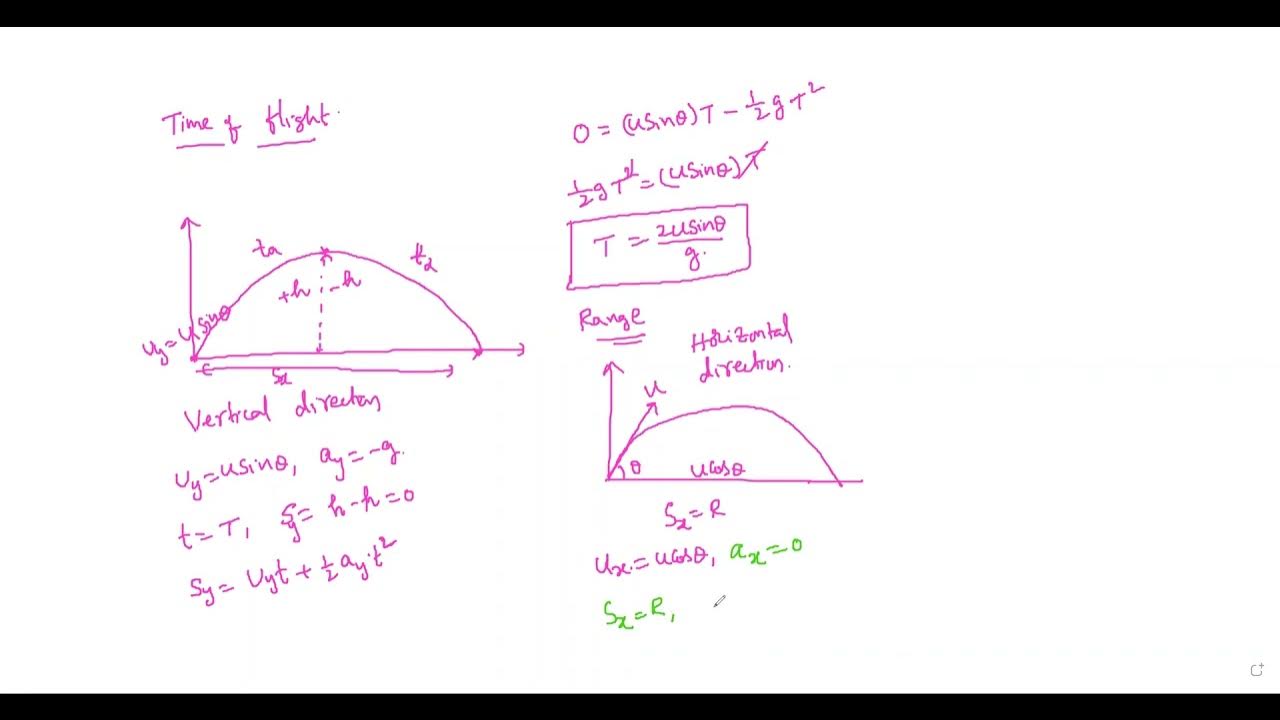 Time of flight.
ta
td
+h
-h
Uy=usinθ
Sx
Vertical direction
Uy=usinθ, ay=-g.
t=T, Sy=h-h=0
Sy=Uyt+½ay.t²
0=(usinθ)T-½gT²
½gT²=(usinθ)T
T=2usinθ/g.
Range
Horizontal
direction.
u
θ
ucosθ
Sx=R
Ux=ucosθ, ax=0
Sx=R,